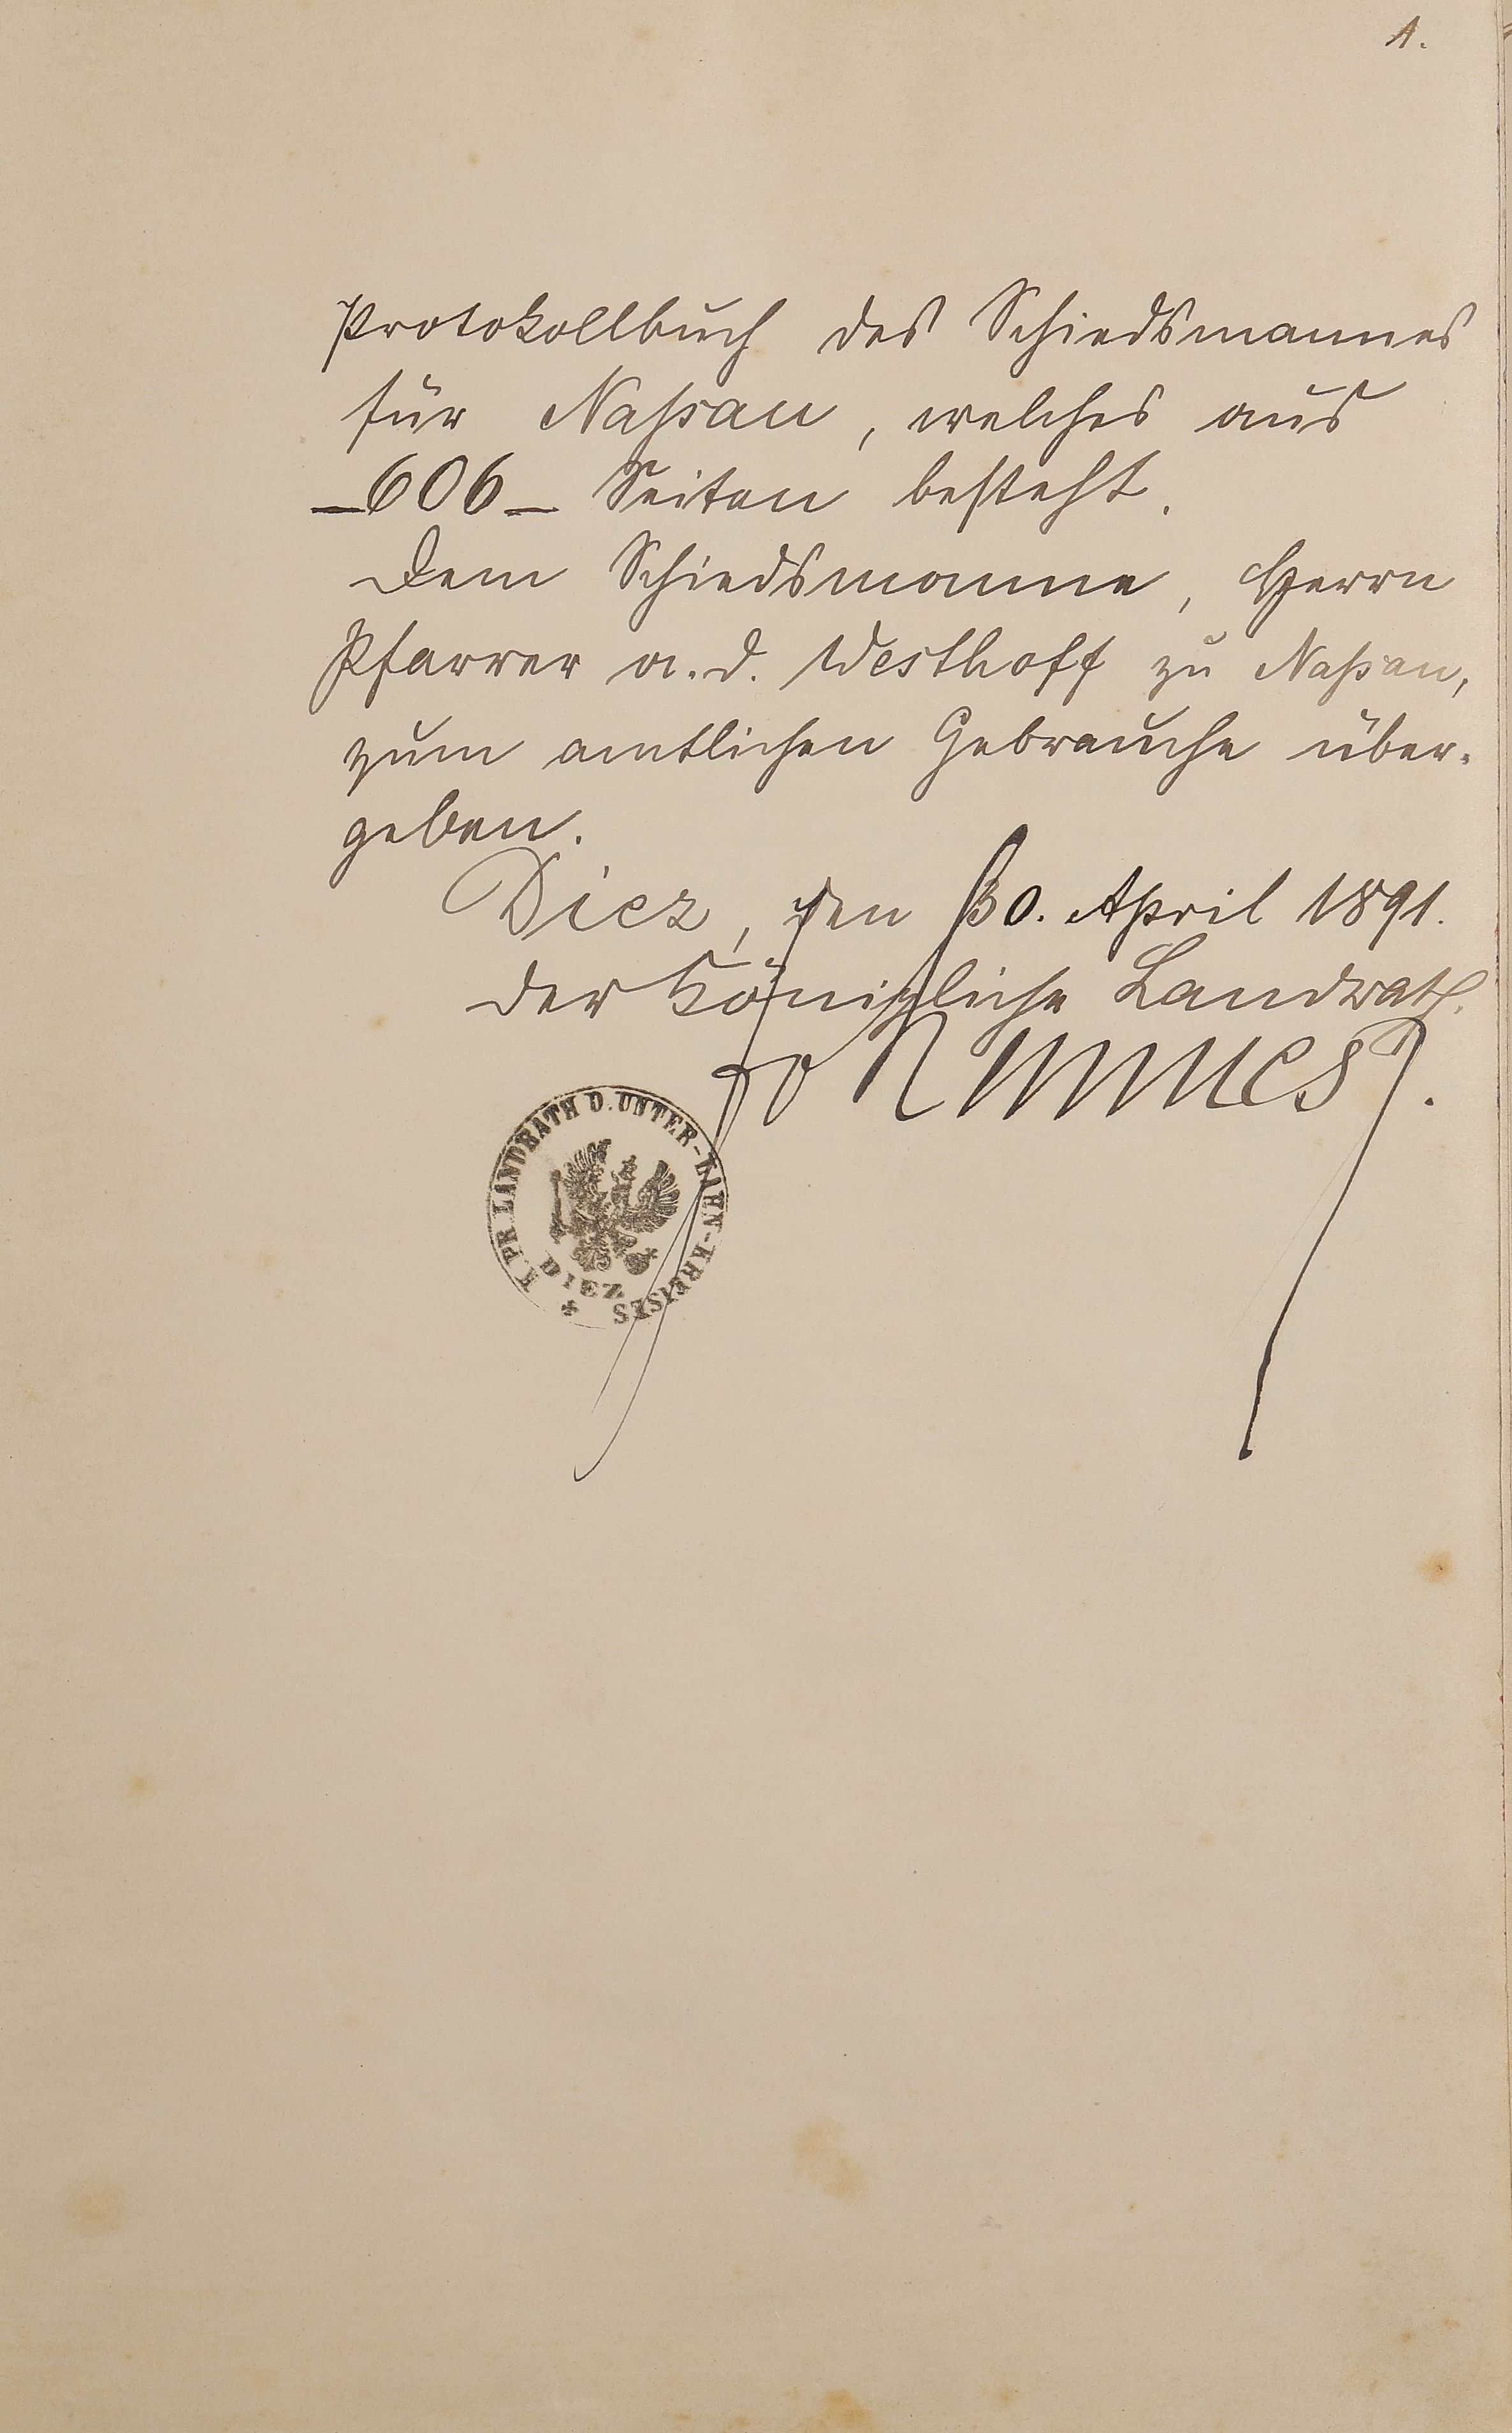 1.
Protokollbuch des Schiedsmannes
für Naßau, welches aus
_606_ Seiten besteht.
Dem Schiedsmanne, Herrn
Pfarrer a. d. Westhoff zu Naßau,
zum amtlichen Gebrauche über-
geben.
Diez, den 30. April 1891.
Der Königliche Landrath.
K. PR. LANDRATH D. UNTER-LAHN-KREISES
DIEZ